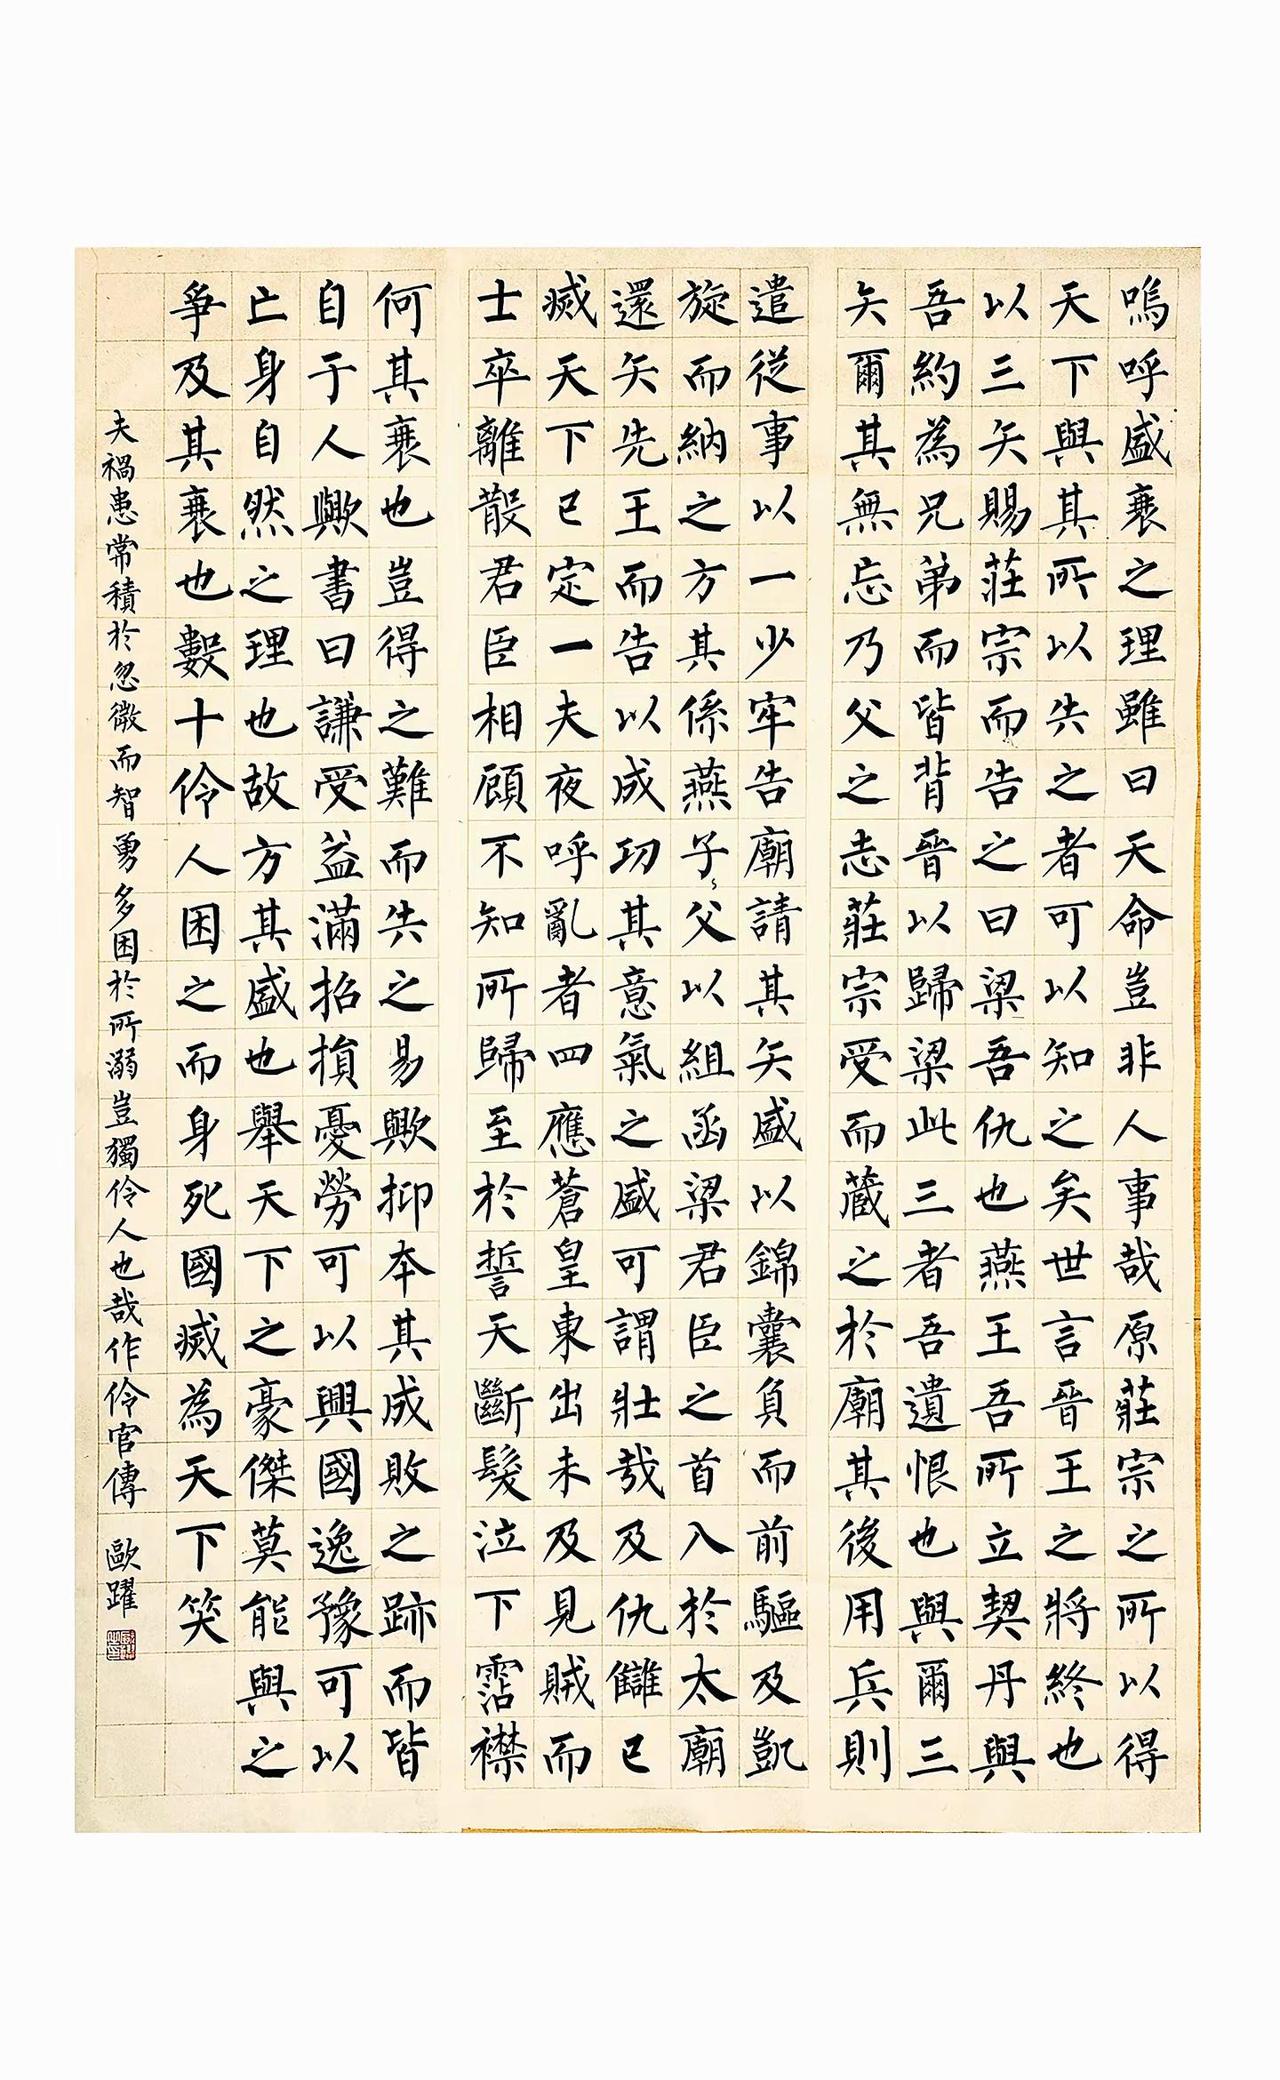 嗚呼盛衰之理雖曰天命豈非人事哉原莊宗之所以得
天下與其所以失之者可以知之矣世言晉王之將終也
以三矢賜莊宗而告之曰梁吾仇也燕王吾所立契丹與
吾約為兄弟而皆背晉以歸梁此三者吾遺恨也與爾三
矢爾其無忘乃父之志莊宗受而藏之於廟其後用兵則
遣從事以一少牢告廟請其矢盛以錦囊負而前驅及凱
旋而納之方其係燕子父以組函梁君臣之首入於太廟
還矢先王而告以成功其意氣之盛可謂壯哉及仇讎已
滅天下已定一夫夜呼亂者四應蒼皇東出未及見賊而
士卒離散君臣相顧不知所歸至於誓天斷髮泣下霑襟
何其衰也豈得之難而失之易歟抑本其成敗之跡而皆
自于人歟書曰謙受益滿招損憂勞可以興國逸豫可以
亡身自然之理也故方其盛也舉天下之豪傑莫能與之
爭及其衰也數十伶人困之而身死國滅為天下笑
夫禍患常積於忽微而智勇多困於所溺豈獨伶人也哉作伶官傳 歐躍